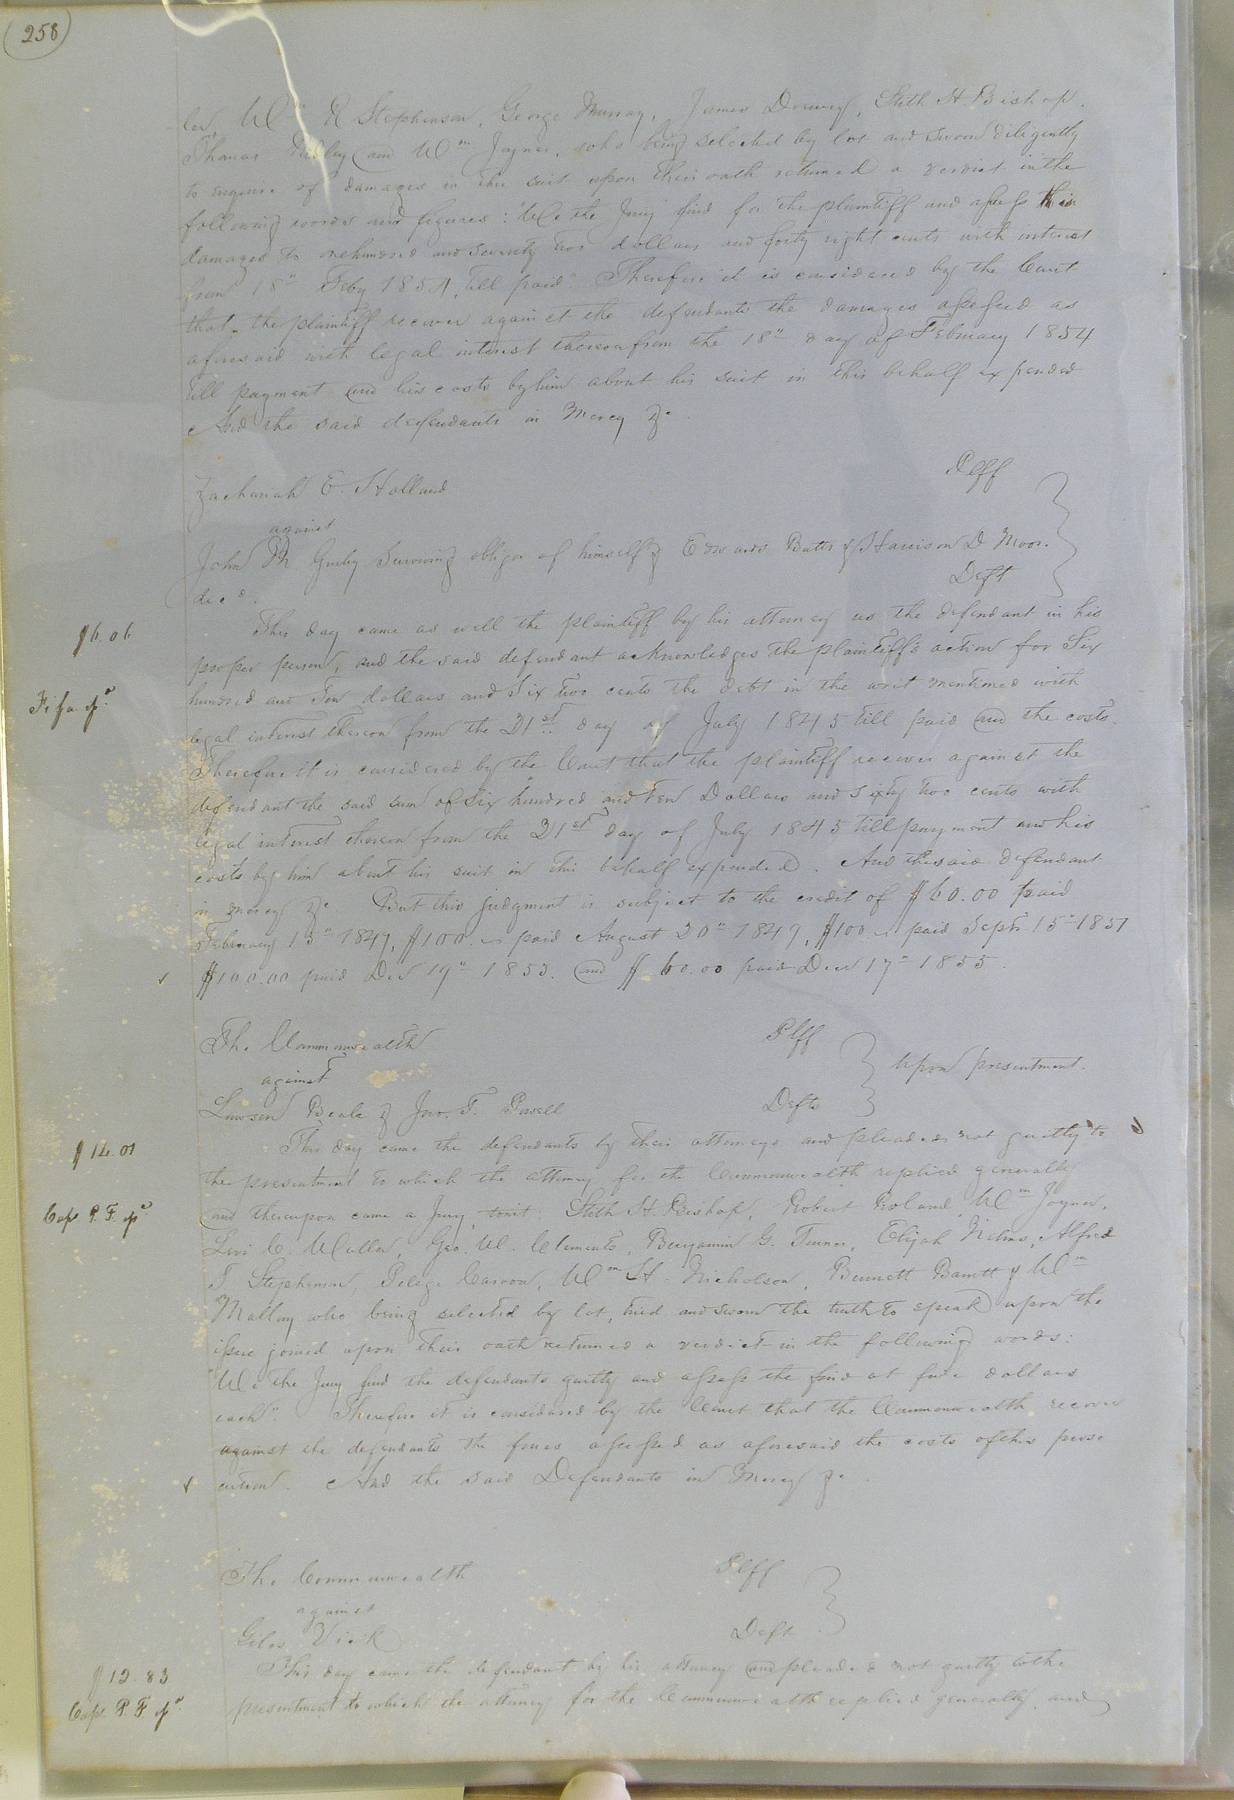 258
ler, Wm R Stephenson, George Murray, James Dorsey, Stith H Bishop,
Thomas Ridley and Wm Joyner, who being selected by lot and sworn diligently
to enquire of damages in this suit upon their oath returned a verdict in the
following words and figures: "We the Jury find for the plaintiff and assess his
damages to one hundred and seventy two dollars and forty eight cents with interest
from 18th Feby 1854, till paid" Therefore it is considered by the Court
that the plaintiff recover against the defendants the damages assessed as
aforesaid with legal interest thereon from the 18th day of February 1854
till payment and his costs by him about his suit in this behalf expended
And the said defendants in Mercy &c.
Zachariah E. Holland Plff
against
John M Gurley Surviving obligor of himself & Edwards Butts & Harrison D Moore
decd. Deft
$6.06
This day came as well the plaintiff by his attorney as the defendant in his
proper person, and the said defendant acknowledges the plaintiff's action for Six
Fi fa
hundred and Ten dollars and Six two cents the debt in the writ mentioned with
legal interest thereon from the 31st day of July 1845 till paid and the costs.
Therefore it is considered by the Court that the plaintiff recover against the
defendant the said sum of Six hundred and ten Dollars and sixty two cents with
legal interest thereon from the 31st day of July 1845 till payment and his
costs by him about his suit in this behalf expended. And the said defendant
in mercy &c. But this judgment is subject to the credit of $60.00 paid
February 15th 1847, $100. paid August 20th 1849, $100. paid Sept 15th 1851
$100.00 paid Dec 19th 1853. and $60.00 paid Decr 17th 1855.
The Commonwealth Plff
against Upon presentment.
Lawson Beale & Jno. T. Powell Defts
$14.01
This day came the defendants by their attorneys and pleaded not guilty to
the presentment to which the attorney for the Commonwealth replied generally
Cap P. F.
and thereupon came a Jury, towit: Stith H. Bishop, Robert Roland, Wm Joyner,
Levi C. Waller, Geo. W. Clements, Benjamin G. Turner, Elijah Nelms, Alfred
T. Stephenson, Pelege Carson, Wm H. Nicholson, Bennett Barrett & Wm
Mallory who being selected by lot, tried and sworn the truth to speak upon the
issue joined upon their oath returned a verdict in the following words:
"We the Jury find the defendants guilty and assess the fine at five dollars
each". Therefore it is considered by the Court that the Commonwealth recover
against the defendants the fines assessed as aforesaid the costs of this prose
cution. And the said Defendants in Mercy &c.
The Commonwealth Plff
against
Giles Vick Deft
$12.83
This day came the defendant by his attorney and pleaded not guilty to the
Cap P. F.
presentment to which the attorney for the Commonwealth replied generally and